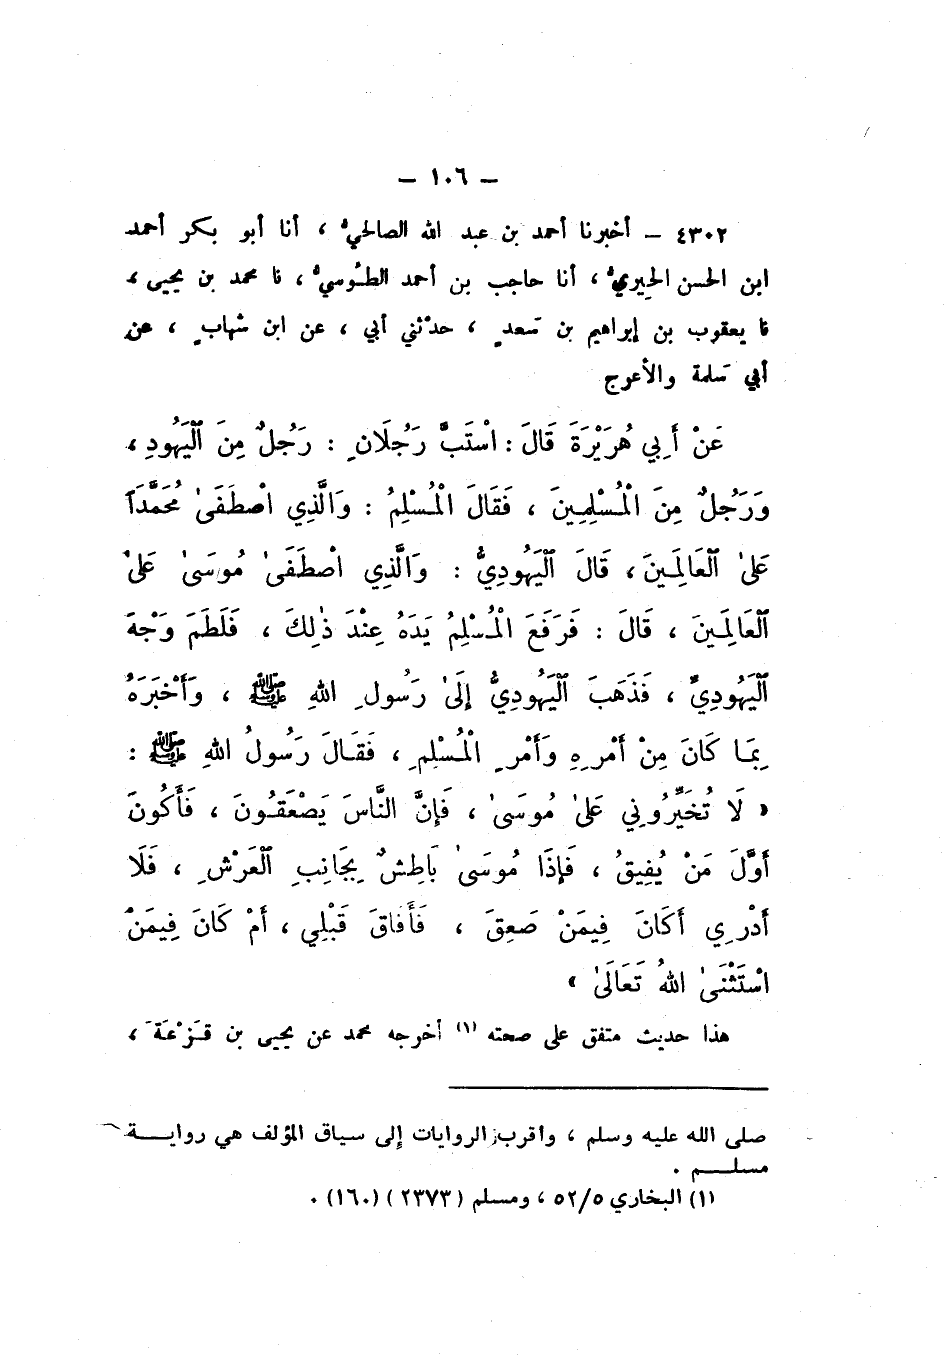 – ١٠٦ –
٤٣٠٢ – أخبرنا أحمد بن عبد الله الصالحيُّ ، أنا أبو بكر أحمد
ابن الحسن الحِيريُّ ، أنا حاجب بن أحمد الطُّوسيُّ ، نا محمد بن يحيى ،
نا يعقوب بن إبراهيم بن سَعدٍ ، حدّثني أبي ، عن ابن شهابٍ ، عن
أبي سَلمة والأعرج
عَنْ أَبِي هُرَيْرَةَ قَالَ : اسْتَبَّ رَجُلَانِ : رَجُلٌ مِنَ ٱلْيَهُودِ ،
وَرَجُلٌ مِنَ الْمُسْلِمِينَ ، فَقَالَ الْمُسْلِمُ : وَالَّذِي اصْطَفَىٰ مُحَمَّدَاً
عَلىٰ ٱلْعَالَمِينَ ، قَالَ ٱلْيَهُودِيُّ : وَالَّذِي اصْطَفَىٰ مُوسَىٰ عَلىٰ
ٱلْعَالَمِينَ ، قَالَ : فَرَفَعَ الْمُسْلِمُ يَدَهُ عِنْدَ ذٰلِكَ ، فَلَطَمَ وَجْهَ
ٱلْيَهُودِيِّ ، فَذَهَبَ ٱلْيَهُودِيُّ إِلَىٰ رَسُولِ اللهِ ﷺ ، وَأَخْبَرَهُ
بِمَا كَانَ مِنْ أَمْرِهِ وَأَمْرِ الْمُسْلِمِ ، فَقَالَ رَسُولُ اللهِ ﷺ :
« لَا تُخَيِّرُونِي عَلىٰ مُوسَىٰ ، فَإِنَّ النَّاسَ يَصْعَقُونَ ، فَأَكُونَ
أَوَّلَ مَنْ يُفِيقُ ، فَإِذَا مُوسَىٰ بَاطِشٌ بِجَانِبِ ٱلْعَرْشِ ، فَلَا
أَدْرِي أَكَانَ فِيمَنْ صَعِقَ ، فَأَفَاقَ قَبْلِي ، أَمْ كَانَ فِيمَنْ
اسْتَثْنَىٰ اللهُ تَعَالَىٰ »
هذا حديث متفق على صحته (١) أخرجه محمد عن يحيى بن قَزْعَةَ ،
صلى الله عليه وسلم ، وأقرب الروايات إلى سياق المؤلف هي روايـــة
مسلـــم .
(١) البخاري ٥/٥٢ ، ومسلم (٢٣٧٣) (١٦٠) .